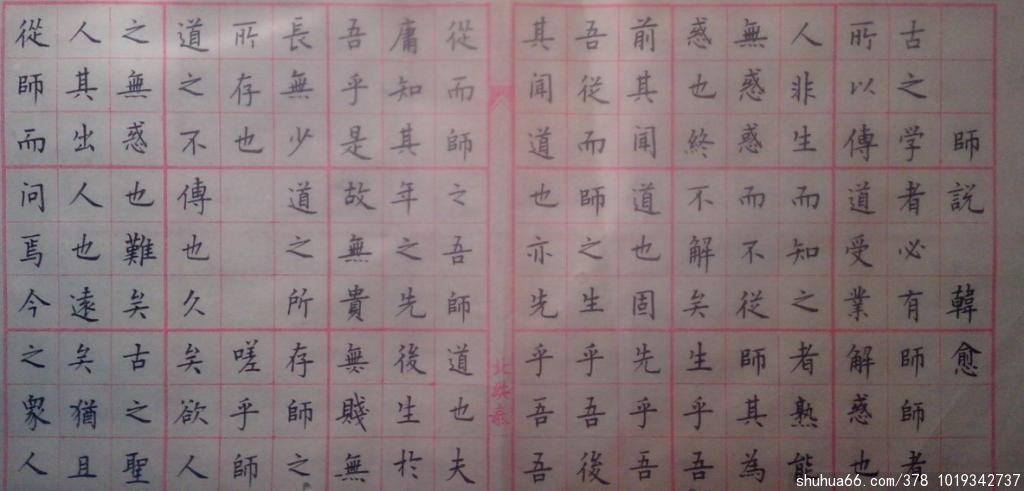 師說 韓愈
古之学者必有師師者
所以傳道受業解惑也
人非生而知之者熟能
無惑惑而不從師其為
惑也終不解矣生乎吾
前其聞道也固先乎吾
吾從而師之生乎吾後
其聞道也亦先乎吾吾
從而師之吾師道也夫
庸知其年之先後生於
吾乎是故無貴無賤無
長無少道之所存師之
所存也 嗟乎師
道之不傳也久矣欲人
之無惑也難矣古之聖
人其出人也遠矣猶且
從師而问焉今之衆人
shuhua66.com/378 1019342737